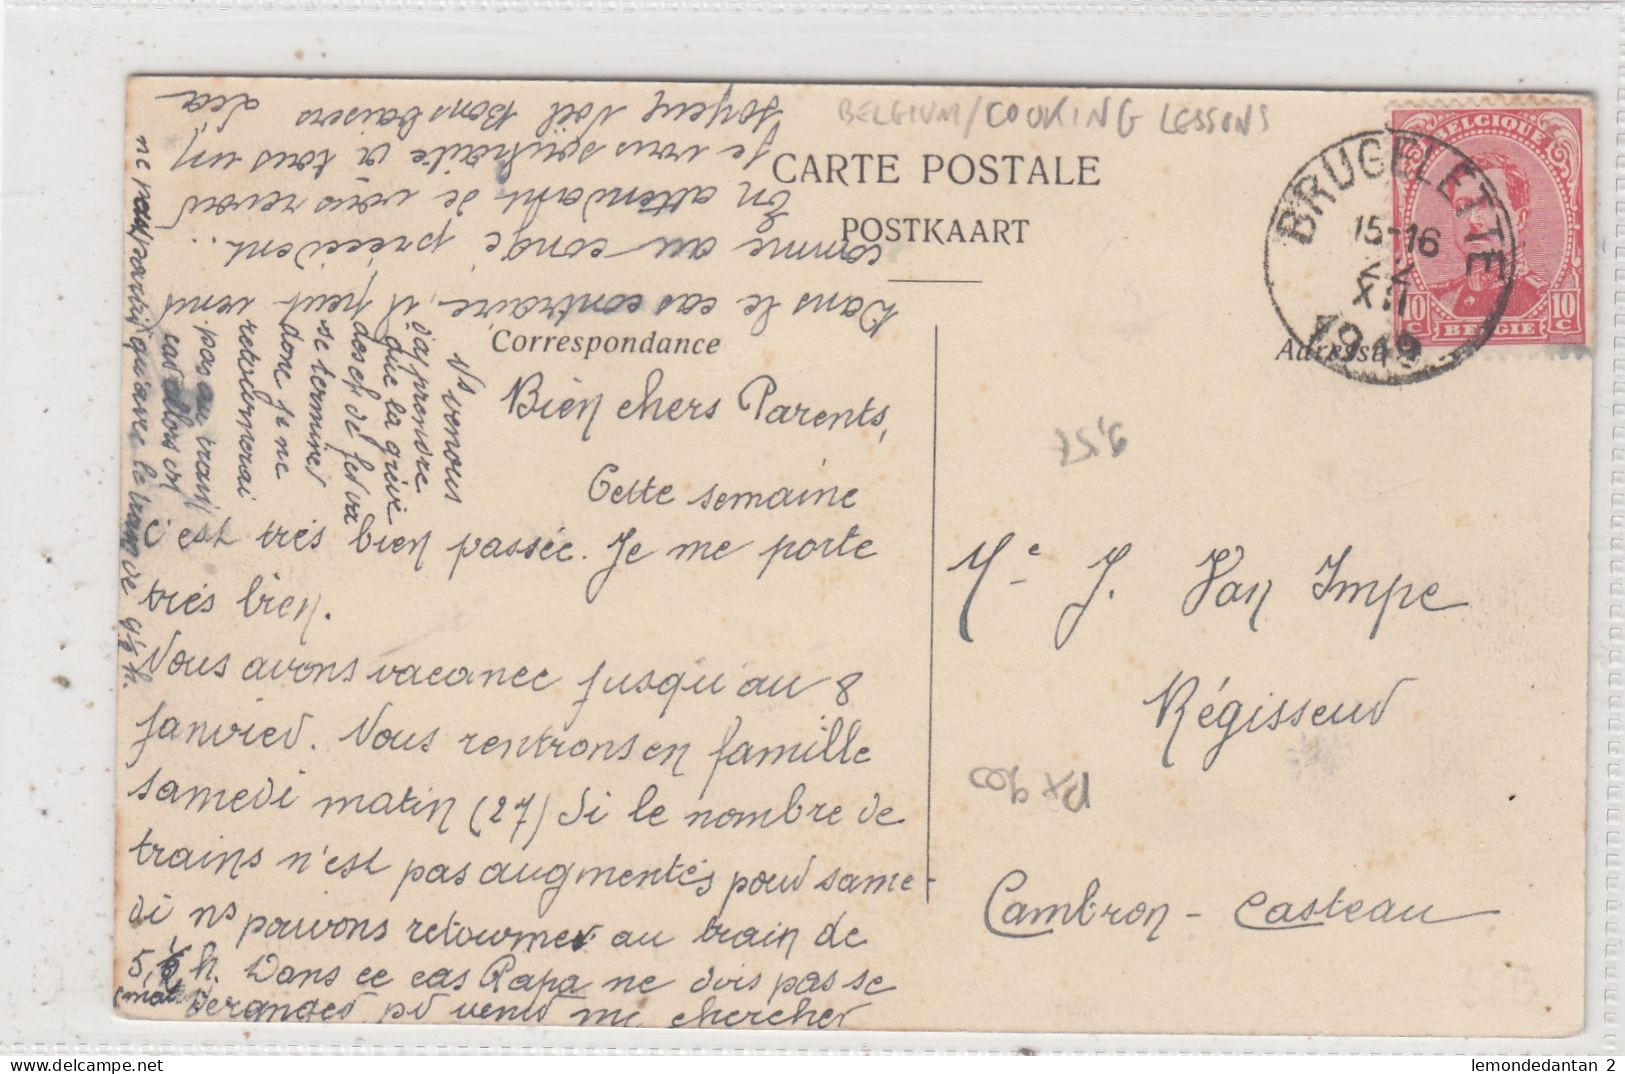 BELGIUM/COOKING LESSONS
CARTE POSTALE
POSTKAART
Correspondance
Adresse
BRUGELETTE
15-16
XII
1919
BELGIQUE
10 c
10 c
BELGIE
9.57
Px 900
Me J. Van Impe
Régisseur
Cambron-Casteau
Bien chers Parents,
Cette semaine
c'est très bien passée. Je me porte
très bien.
Nous avons vacance jusqu'au 8
Janvier. Nous rentrons en famille
samedi matin (27) Si le nombre de
trains n'est pas augmentés pour same-
di ns pouvons retourner au train de
5,1/2 h. Dans ce cas Papa ne dois pas se
(mat) déranger pr venir me chercher
Dans le cas contraire, il peut venir
comme au congé précédent.
En attendant de vous revoir
je vous souhaite à tous un
joyeux Noël Bons baisers
Léa
Vs venons
d'apprendre
que la grève
des ch de fer va
se terminer
donc je ne
retournerai
pas au train
car alors on
ne peut partir qu'avec le train de 9 1/2 h.
lemondedantan 2